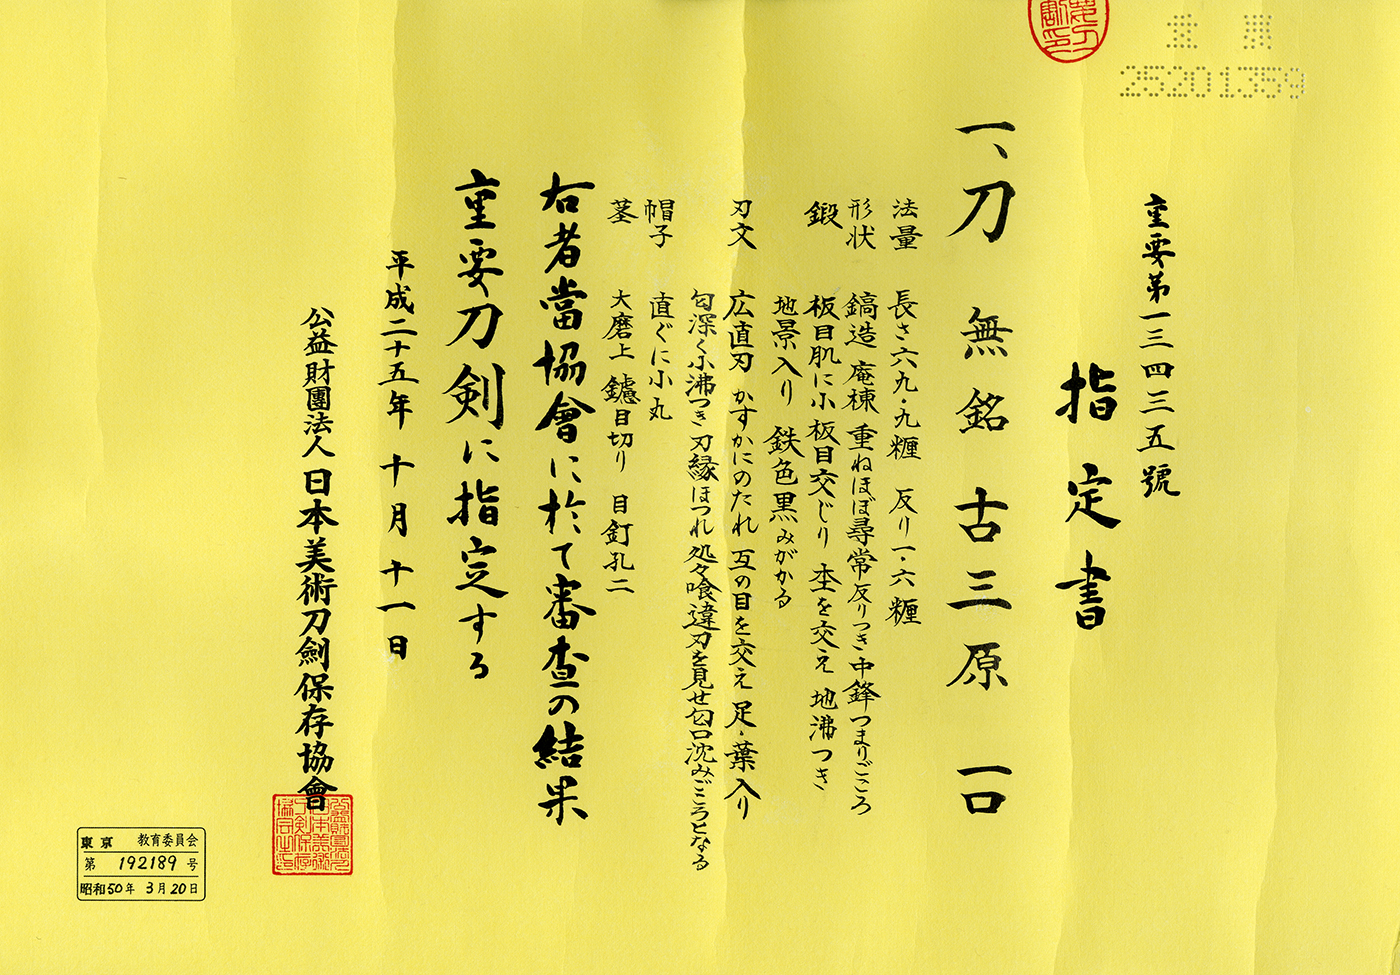 重要
25201359
重要第一三四三五號
指定書
一、刀 無銘 古三原 一口
法量 長さ六九・九糎 反り一・六糎
形状 鎬造 庵棟 重ねほぼ尋常 反りつき 中鋒つまりごころ
鍛 板目肌に小板目交じり 杢を交え 地沸つき
地景入り 鉄色黒みがかる
刃文 広直刃 かすかにのたれ 互の目を交え 足・葉入り
匂深く小沸つき 刃縁ほつれ 処々喰違刃を見せ匂口沈みごころとなる
帽子 直ぐに小丸
茎 大磨上 鑢目切り 目釘孔二
右者當協會に於て審査の結果
重要刀剣に指定する
平成二十五年十月十一日
公益財團法人 日本美術刀劍保存協會
東京 教育委員会
第 192189 号
昭和50年 3月20日